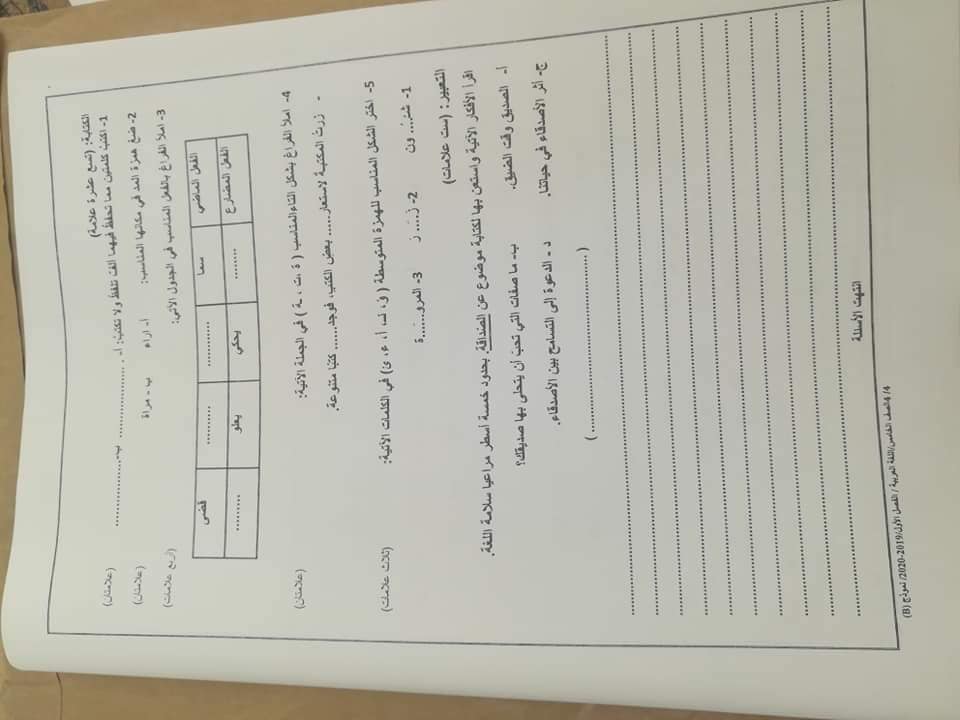 الكتابة: (تسع عشرة علامة)
1- اكتبْ كلمتين مما تحفظُ فيهما ألفٌ تلفظ ولا تكتب: أ- .................... ب-.................... (علامتان)
2- ضعْ همزة المد في مكانها المناسب: أ- اراء ب - مراة (علامتان)
3- املأ الفراغ بالفعل المناسب في الجدول الآتي: (أربع علامات)
الفعل الماضي سما ............ ............ قضى
الفعل المضارع ......... يحكي يعلو .........
4- املأ الفراغ بشكل التاء المناسب ( ة ،ت ، ـة ) في الجملة الآتية: (علامتان)
- زرتُ المكتبة لاستعار...... بعض الكتب، فوجد...... كتبًا متنوعة.
5- اختر الشكل المناسب للهمزة المتوسطة ( ؤ، ئـ، أ، ء، ئ) في الكلمات الآتية: (ثلاث علامات)
1- شـُ.... ون 2- زَ.... رَ 3- المرو....ة
التعبير : (ست علامات)
اقرأ الأفكار الآتية واستعن بها لكتابة موضوع عن الصداقة بحدود خمسة أسطر مراعيا سلامة اللغة.
أ- الصديق وقت الضيق. ب- ما صفات التي تحبّ أن يتحلى بها صديقك؟
ج- أثر الأصدقاء في حياتنا. د - الدعوة إلى التسامح بين الأصدقاء.
( ........................................ )
انتهت الأسئلة
4/ 4الصف الخامس/اللغة العربية / الفصل الأول/2019-2020/ نموذج (B)